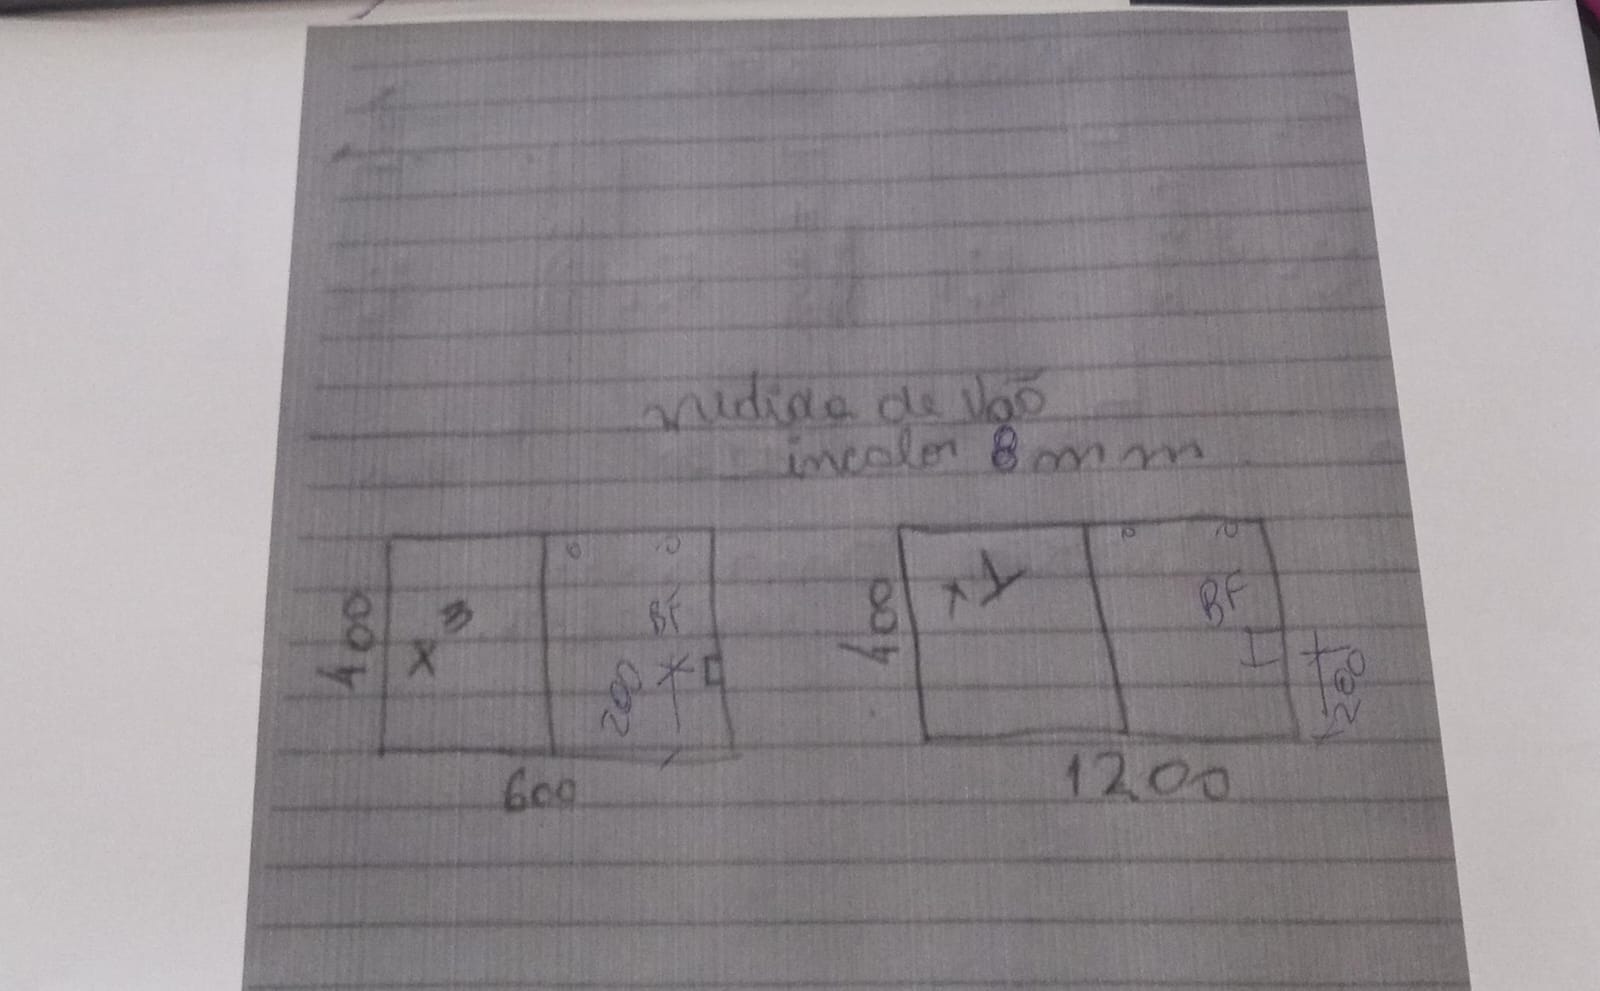 medida de Vão
incolor 8mm
400
x 3
BF
200
600
400
x1
BF
200
1200